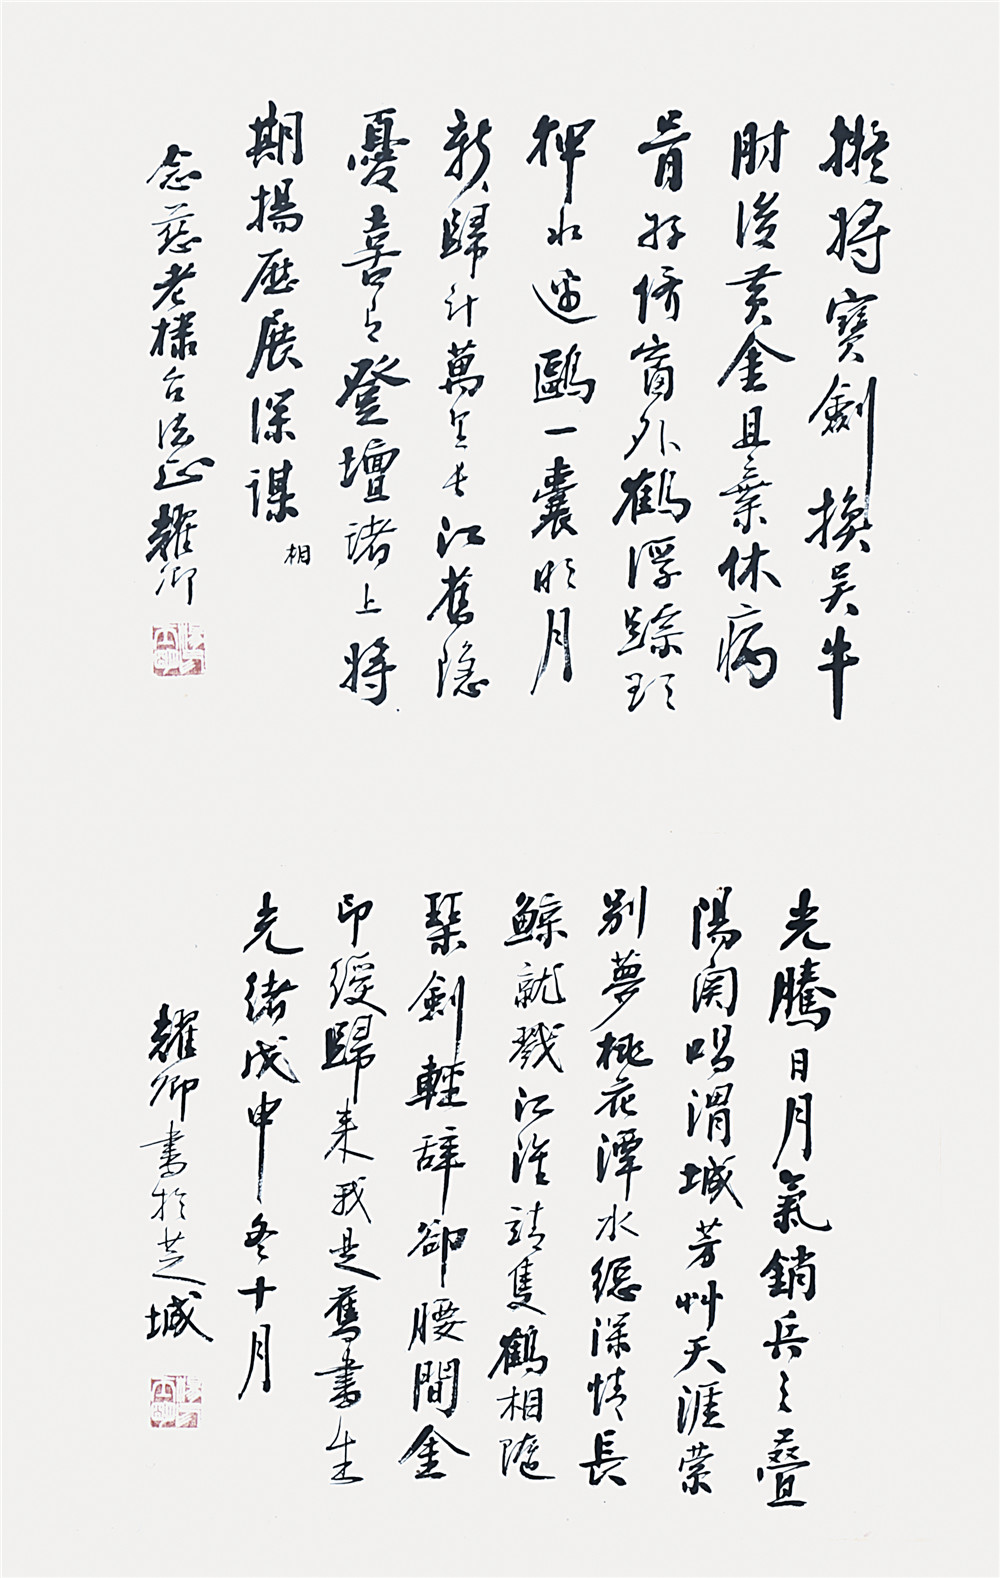 擬將寶劍換吴牛
肘後黄金且棄休病
骨好侪窗外鶴浮蹤
狎水邊鷗一囊明月
新歸計萬里長江舊隐
憂喜登壇諸上將
期揚歷展深謀
相
念慈老棣台法正耀卿
光騰日月氣銷兵三疊
陽関唱渭城芳艸天涯縈
别夢桃花潭水總深情長
鯨就戮江淮靖隻鶴相隨
琹劍輕辞卻腰間金
印綬歸来我是舊書生
光緒戊申冬十月
耀卿書於芝城